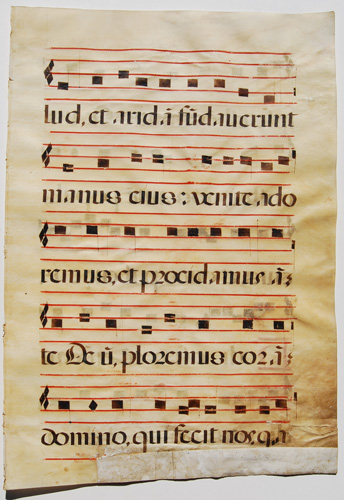 lud, et aridā fūdauerunt
manus eius: venite ado
remus, et procidamus ā
te Deū, ploremus corā
domino, qui fecit nos, q̄a